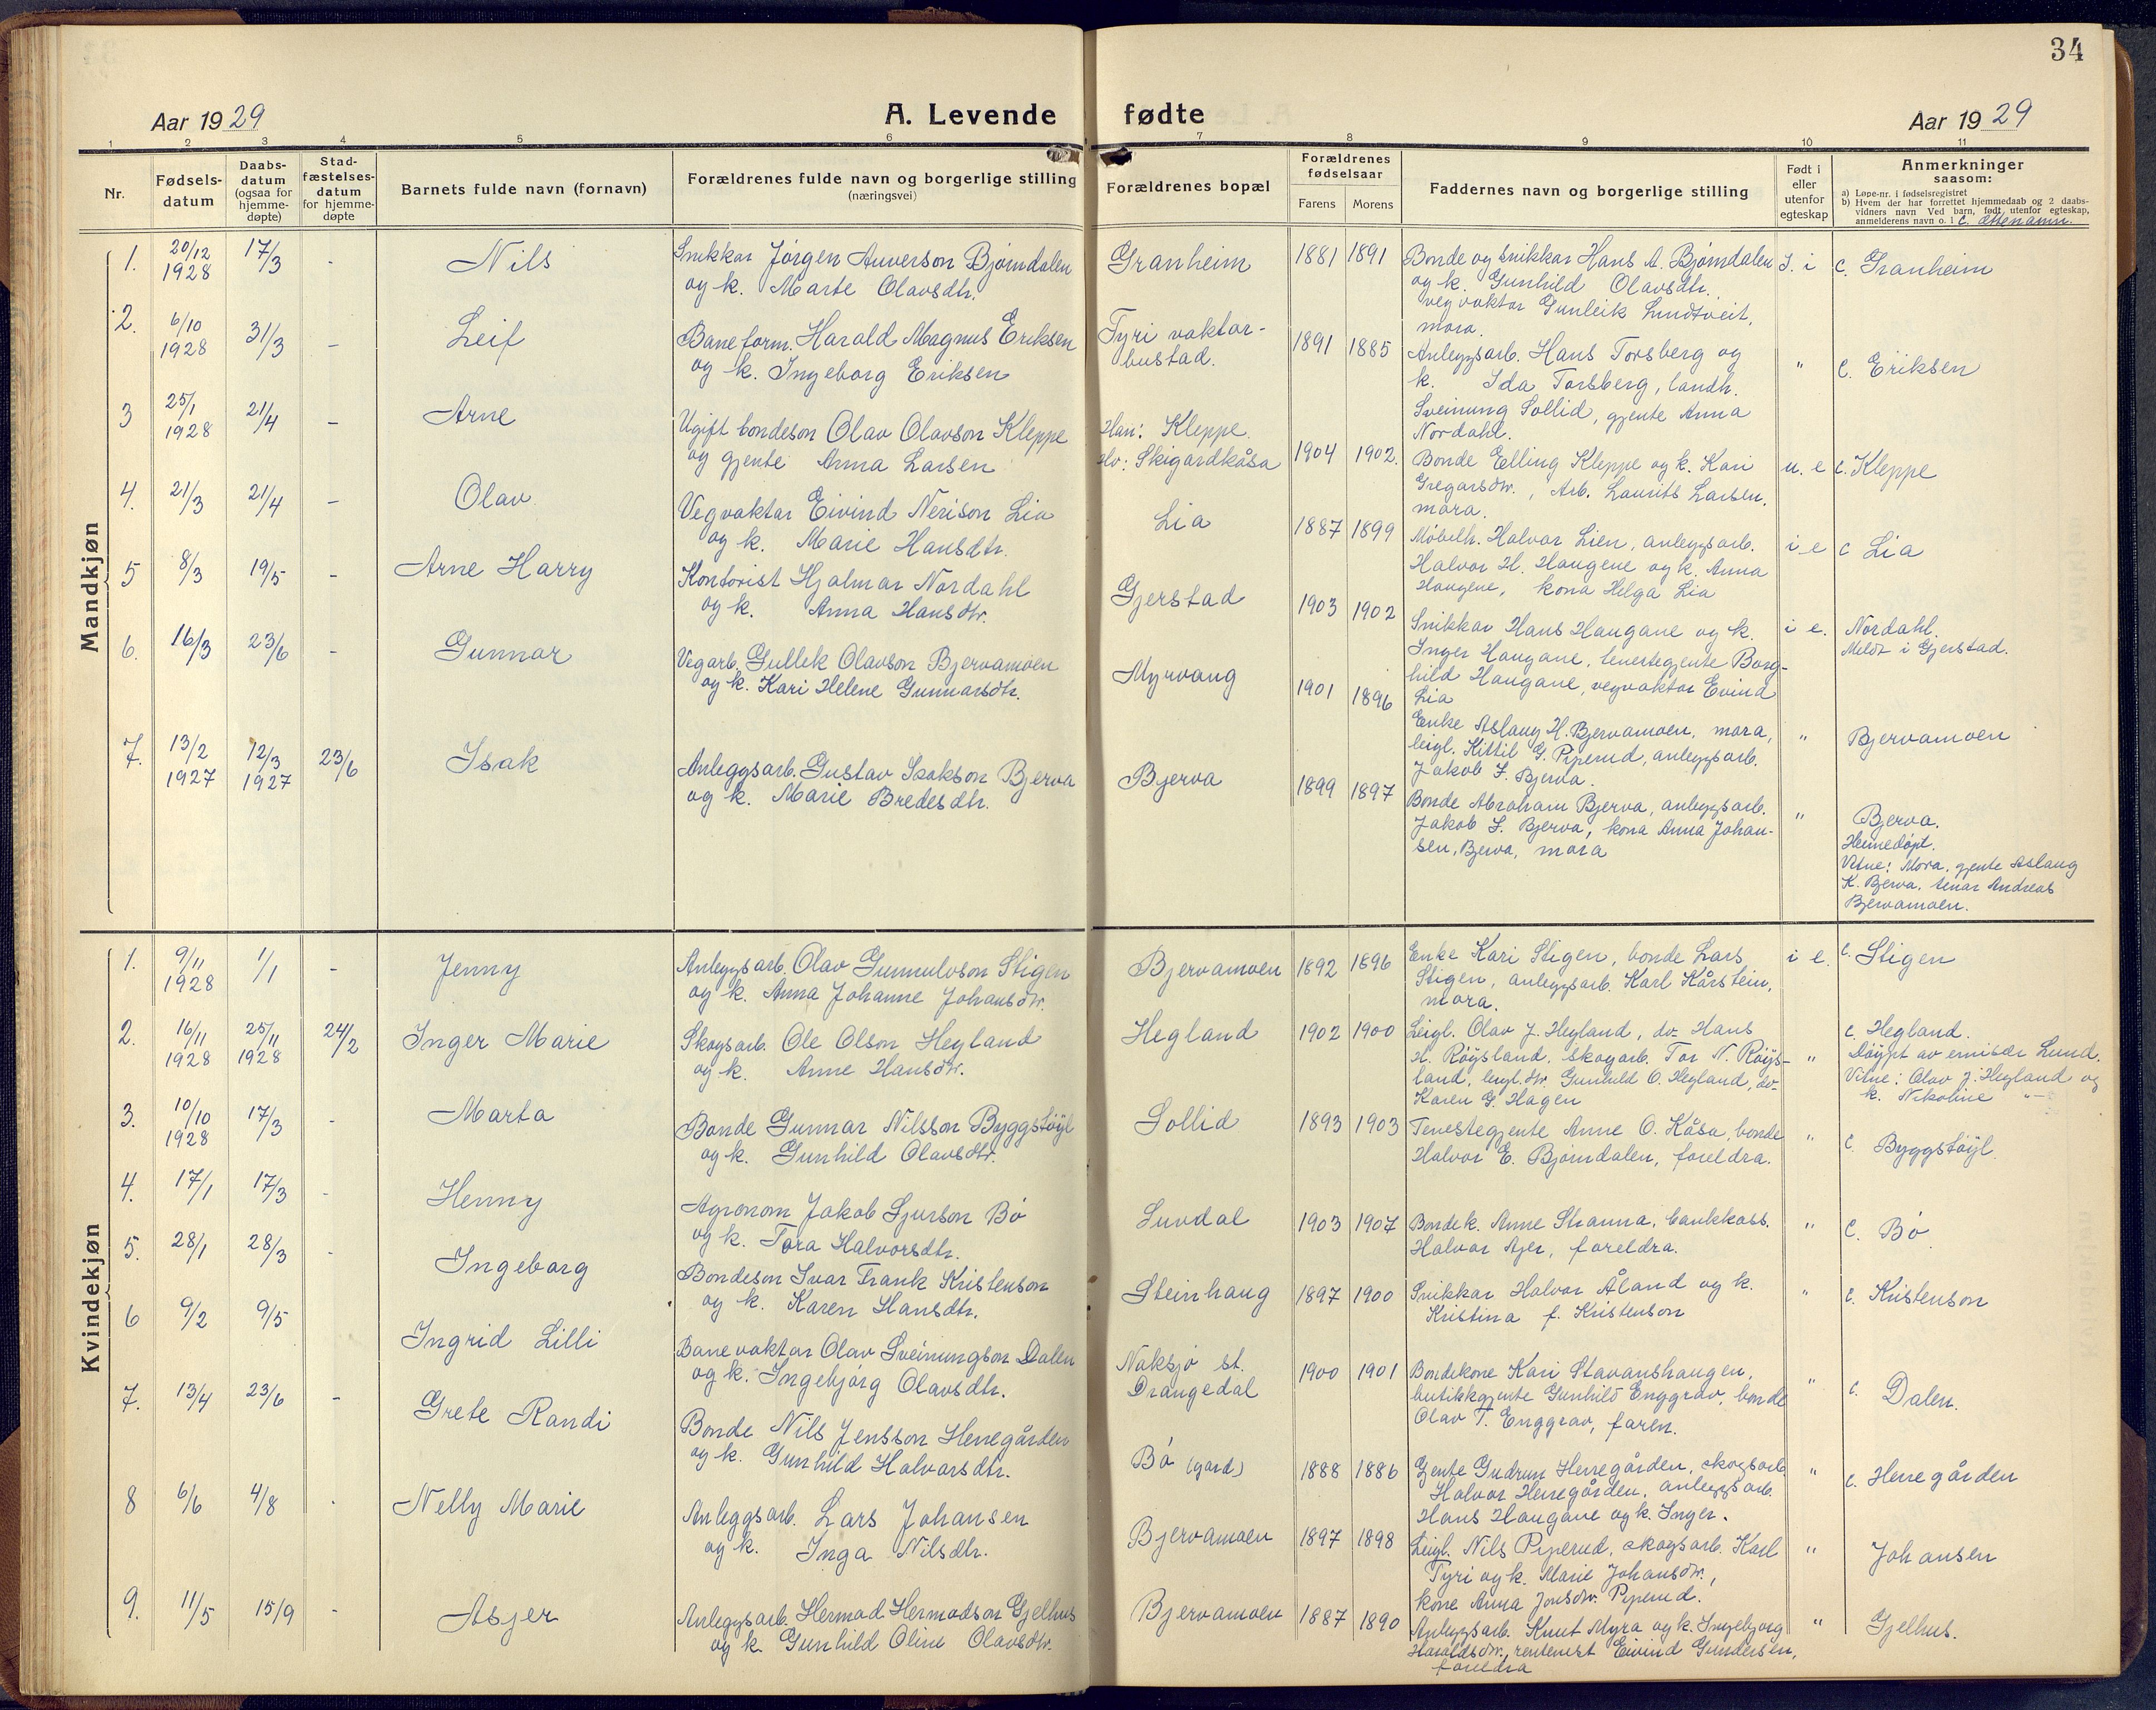 34
Aar 1929
A. Levende fødte
Aar 1929
1 2 3 4 5 6 7 8 9 10 11
Nr.
Fødsels-
datum
Daabs-
datum
(ogsaa for
hjemme-
døpte)
Stad-
fæstelses-
datum
for hjemme-
døpte
Barnets fulde navn (fornavn)
Forældrenes fulde navn og borgerlige stilling
(næringsvei)
Forældrenes bopæl
Forældrenes
fødselsaar
Farens Morens
Faddernes navn og borgerlige stilling
Født i
eller
utenfor
egteskap
Anmerkninger
saasom:
a) Løpe-nr. i fødselsregistret
b) Hvem der har forrettet hjemmedaab og 2 daabs-
vidners navn Ved barn, født utenfor egteskap,
anmelderens navn o. l. c. ættenamn.
Mandkjøn
1. 20/12 1928 17/3 - Nils
Snikkar Jørgen Anverson Bjørndalen
og k. Marte Olavsdtr.
Granheim 1881 1891
Bonde og snikkar Hans A. Bjørndalen
og k. Gunhild Olavsdtr.
vegvaktar Gunleik Lundtveit,
mora.
I. i c. Granheim
2. 6/10 1928 31/3 - Leif
Baneform. Harald Magnus Eriksen
og k. Ingeborg Eriksen
Tyri vaktar-
bustad.
1891 1885
Anleggsarb. Hans Torsberg og
k. Ida Torsberg, landh.
Sveinung Sollid, gjente Anna
Nordahl.
" c. Eriksen
3 25/1 1928 21/4 - Arne
Ugift bondeson Olav Olavson Kleppe
og gjente Anna Larsen
Han: Kleppe.
Ho: Skigardkåsa
1904 1902.
Bonde Elling Kleppe og k. Kari
Gregarsdtr., Arb. Laurits Larsen,
mora.
u. e c. Kleppe
4. 21/3 21/4 - Olav
Vegvaktar Eivind Nerison Lia
og k. Marie Hansdtr.
Lia 1887 1899
Møbelh. Halvor Lien, anleggsarb.
Halvor H. Haugene og k. Anna
Haugene, kona Helga Lia
i e c Lia
5 8/3 19/5 - Arne Harry
Kontorist Hjalmar Nordahl
og k. Anna Hansdtr.
Gjerstad 1903 1902
Snikkar Hans Haugane og k.
Inger Haugane, tenestegjente Borg-
hild Haugane, vegvaktar Eivind
Lia
i e. Nordahl.
Meldt i Gjerstad.
6. 16/3 23/6 - Gunnar
Vegarb. Gullek Olavson Bjervamoen
og k. Kari Helene Gunnarsdtr.
Myrvang 1901 1896
Enke Aslaug H. Bjervamoen, mora,
leigl. Kittil G. Piperud, anleggsarb.
Jakob I. Bjerva.
" Bjervamoen
7. 13/2 1927 12/3 1927 23/6 Isak
Anleggsarb. Gustav Isakson Bjerva
og k. Marie Bredesdtr.
Bjerva 1899 1897
Bonde Abraham Bjerva, anleggsarb.
Jakob I. Bjerva, kona Anna Johan-
sen, Bjerva, mora
" Bjerva.
Heimedøpt.
Vitne: Mora, gjente Aslaug
K. Bjerva, tenar Andreas
Bjervamoen.
Kvindekjøn
1. 9/11 1928 1/1 - Jenny
Anleggsarb. Olav Gunnulvson Stigen
og k. Anna Johanne Johansdtr.
Bjervamoen 1892 1896
Enke Kari Stigen, bonde Lars
Stigen, anleggsarb. Karl Kårstein,
mora.
i e. c. Stigen
2. 16/11 1928 25/11 1928 24/2 Inger Marie
Skogsarb. Ole Olson Hegland
og k. Anne Hansdtr.
Hegland 1902 1900
Leigl. Olav J. Hegland, do. Hans
H. Røysland, skogarb. Tor N. Røys-
land, leigl.dtr. Gunhild O. Hegland, do.
Karen G. Hagen
" c. Hegland.
Døypt av emisær Lund.
Vitne: Olav J. Hegland og
k. Nikoline -"-
3. 10/10 1928 17/3 - Marta
Bonde Gunnar Nilsson Byggstøyl
og k. Gunhild Olavsdtr.
Sollid 1893 1903
Tenestegjente Anne O. Kåsa, bonde
Halvor E. Bjørndalen, foreldra.
" c. Byggstøyl.
4. 17/1 17/3 - Henny
Agronom Jakob Sjurson Bø
og k. Tora Halvorsdtr.
Luvdal 1903 1907
Bondek. Anne Stranna, bankkass.
Halvor Ajer, foreldra.
" c. Bø
5. 28/1 28/3 - Ingeborg
Bondeson Ivar Frank Kristenson
og k. Karen Hansdtr.
Steinhaug 1897 1900
Snikkar Halvor Åland og k.
Kristina f. Kristenson
" c. Kristenson
6 9/2 9/5 Ingrid Lilli
Banevaktar Olav Sveinungson Dalen
og k. Ingebjørg Olavsdtr.
Naksjø st.
Drangedal
1900 1901
Bondekone Kari Stavanshaugen,
butikkgjente Gunhild Enggrav, bonde
Olav T. Enggrav, faren.
" c. Dalen.
7. 13/4 23/6 - Grete Randi
Bonde Nils Jensson Herregården
og k. Gunhild Halvorsdtr.
Bø (gard) 1888 1886
Gjente Gudrun Herregården, skogsarb.
Halvor Herregården, anleggsarb.
Hans Haugane og k. Inger.
" c. Herregården
8 6/6 4/8 - Nelly Marie
Anleggsarb. Lars Johansen
og k. Inga Nilsdtr.
Bjervamoen 1897 1898
Leigl. Nils Piperud, skogsarb. Karl
Tyri og k. Marie Johansdtr.,
kone Anna Jonsdtr. Piperud.
" Johansen
9. 11/5 15/9 - Asjer
Anleggsarb. Hermod Hermodson Gjelhus
og k. Gunhild Oline Olavsdtr.
Bjervamoen 1887 1890
Anleggsarb. Knut Myra og k. Ingebjørg
Haraldsdtr., rentenist Eivind Gundersen,
foreldra
" Gjelhus.